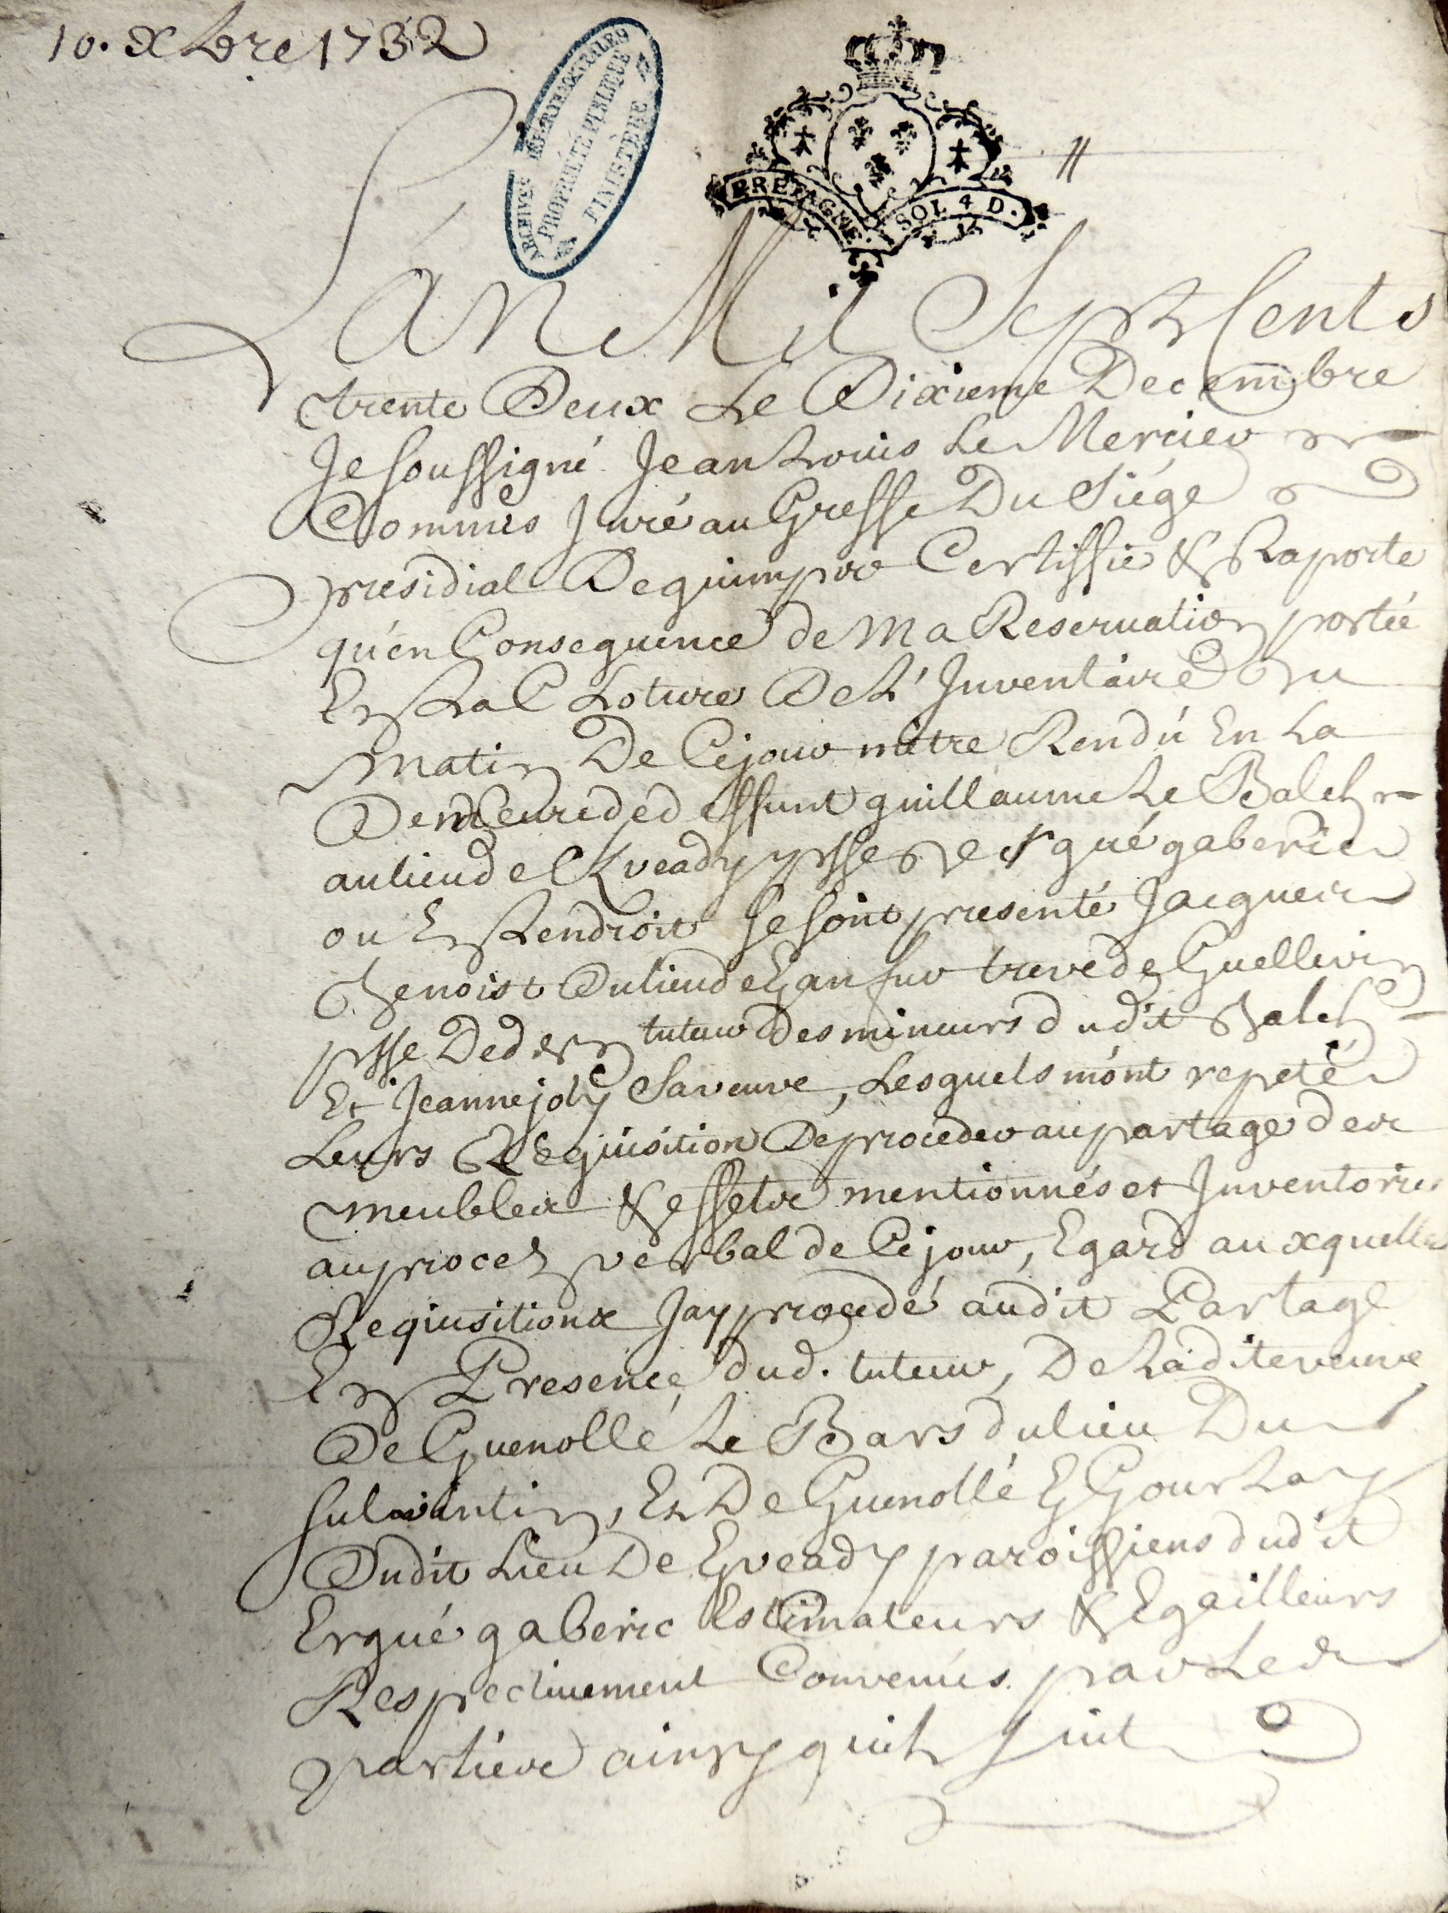 10. xbre 1732
ARCHIVES DEPARTEMENTALES
PROPRIÉTÉ PUBLIQUE
FINISTÈRE
BRETAGNE. SOL 4 D.
L'án Mil Sept Cents
trente Deux Le Dixieme Decembre
Je soussigné Jean Louis Le Mercier
Commis Juré au Greffe Du Siége
presidial De quimper Certiffie & Raporte
qu'en Consequence de Ma Reservation portée
En La Cloture De L'Inventaire Du
matin De Ce jour mêtre Rendú En La
Demeure de deffunt guillaume Le Balch
au lieu de Kveady psse Dergué gaberic
ou En Lendroit se sont presenté Jacques
Benoist Du lieu de treve de Guellevin
psse Ded. tuteur des mineurs dudit Balch
Et Jeanne joly Sa veuve, Lesquels m'ont repeté
Leurs Requisition De proceder au partage des
meubles & effets mentionnés et Inventorie
au procez verbal de Ce jour, Egard auxquelles
Requisitions Jay procedé audit Partage
En Presence dud. tuteur, De Laditte veuve
De Guenollé Le Bars du lieu Du
sulvintin, Et De Guenollé Gourlay
Dudit Lieu De Kveady paroissiens dudit
Ergué gaberic Estimateurs & Egailleurs
Respectivement Convenus par Les
parties ainsy quil suit